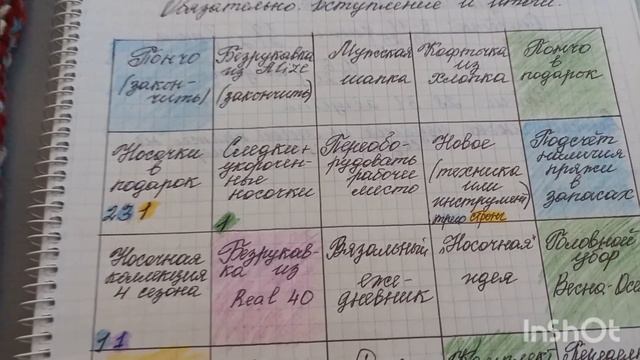 Обязательно: вступление и итоги.
Пончо
(закон-
чить)
Безрукавка
из Alize
(закончить)
Мужская
шапка
Кофточка
из
хлопка
Пончо
в
подарок
Носочки
в
подарок
2 3 1
Следки+
укорочен-
ные
носочки
1
Переобо-
рудовать
рабочее
место
Новое
(техника
или
инструмент)
трио стронг
Подсчёт
наличия
пряжи
в
запасах
Носочная
коллекция
4 сезона
1 1
Безрукав-
ка из
Real 40
Вязальный
еже-
дневник
"Носочная"
идея
Головной
убор
Весна-Осе
Комплект
InShOt